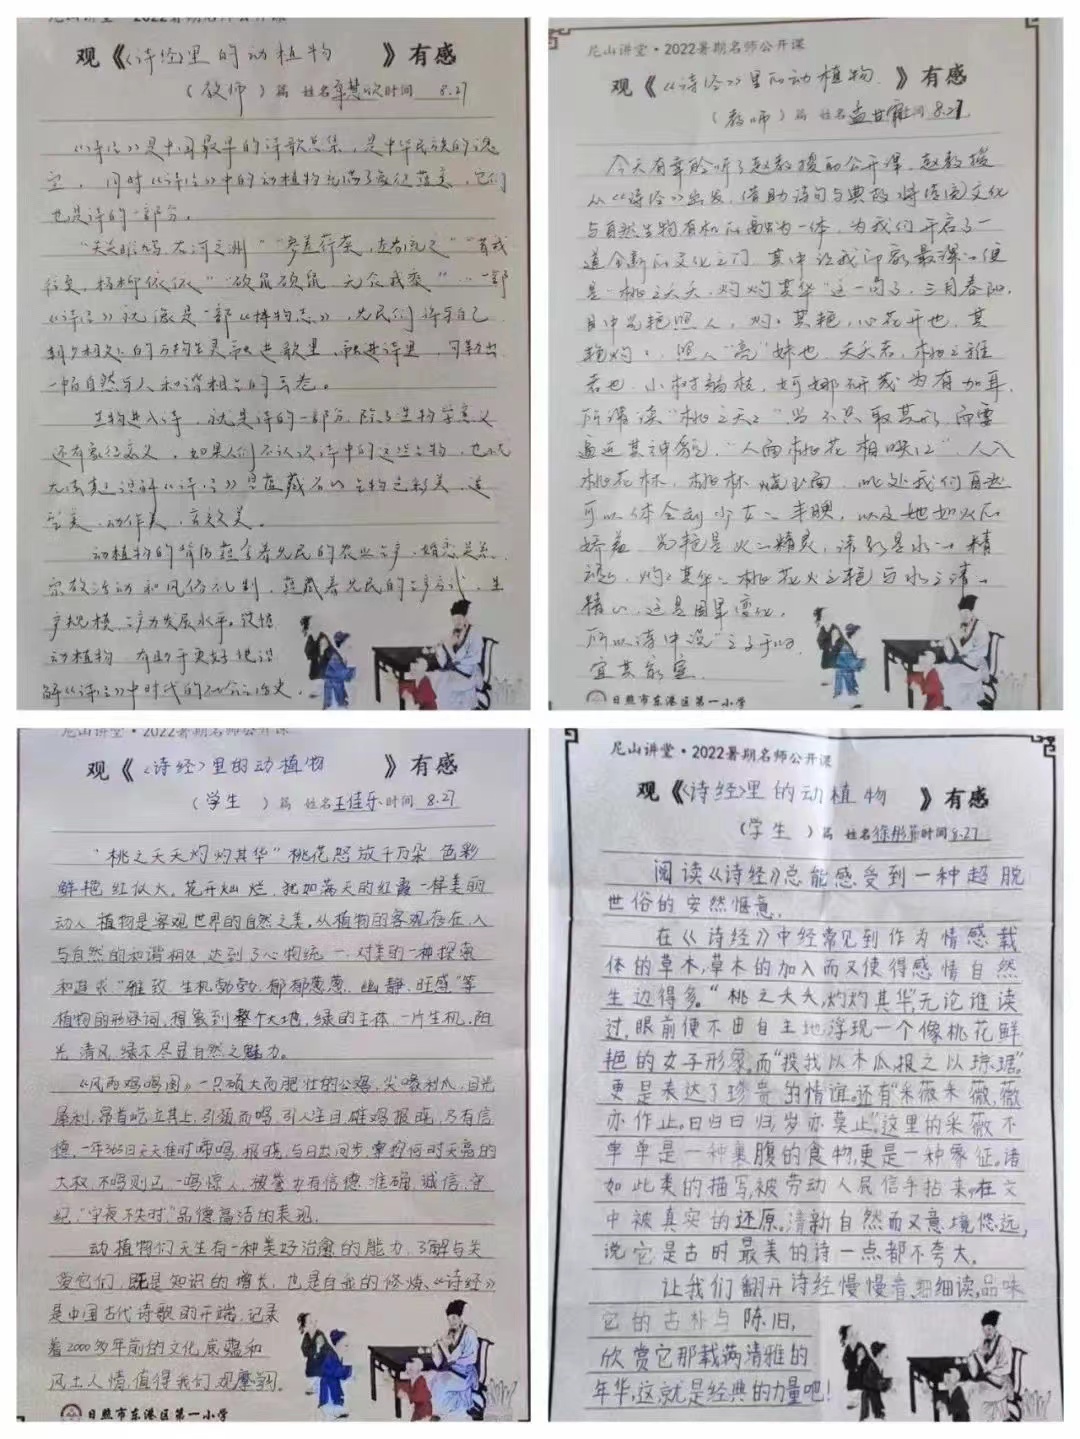 尼山讲堂·2022暑期名师公开课
观《《诗经》里的动植物》有感
(教师)篇 姓名 时间 8.27
《诗经》是中国最早的诗歌总集,是中华民族的瑰
宝,同时《诗经》中的动植物充满了象征蕴意,它们
也是诗的一部分。
"关关雎鸠,在河之洲""参差荇菜,左右流之""昔我
往矣,杨柳依依""硕鼠硕鼠,无食我黍"……一部
《诗经》就像是一部《博物志》,先民们将与自己
朝夕相处的万物生灵融进歌里,融进诗里,勾勒出
一幅自然与人和谐相处的画卷。
生物进入诗,就是诗的一部分,除了生物学意义
还有象征意义,如果人们不认识诗中的这些生物,也就
无法真正理解《诗经》里蕴藏着的生物色彩美,造
型美,动作美,音效美。
动植物的背后蕴含着先民的农业生产,婚恋关系,
宗教活动和风俗礼制,蕴藏着先民的生产方式,生
产规模,生产力发展水平。读懂
动植物,有助于更好地理
解《诗经》中时代的社会生活史。
尼山讲堂·2022暑期名师公开课
观《《诗经》里的动植物.》有感
(教师)篇 姓名 时间 8.27
今天有幸聆听了赵教授的公开课,赵教授
从《诗经》出发,借助诗句与典故,将传统文化
与自然生物有机的融为一体,为我们开启了一
道全新的文化之门,其中让我印象最深的便
是"桃之夭夭,灼灼其华"这一句了,三月春阳,
目中光艳照人,灼灼其艳,心花开也,其
艳灼灼,照人"亮"妹也,夭夭者,桃之雅
者也,小树弱枝,婀娜研哉为有加耳,
所谓读"桃之夭夭"当不只取其形,而要
逼近其神貌,"人面桃花相映红",人入
桃花林,桃林烧红面,此处我们自然
可以体会到少女之丰腴,以及她如火的
娇羞,光艳是火之精灵,
灼灼其华,桃花火之艳与水之清
所以诗中说"之子于归,
宜其家室
日照市东港区第一小学
尼山讲堂·2022暑期名师公开课
观《《诗经》里的动植物》有感
(学生)篇 姓名 王佳乐 时间 8.27
"桃之夭夭灼灼其华"桃花怒放千万朵 色彩
鲜艳红似火。花开灿烂,犹如满天的红霞一样美丽
动人 植物是客观世界的自然之美。从植物的客观存在,人
与自然的和谐相处 达到了心物统一,对美的一种探索
和追求"雅致 生机勃勃,郁郁葱葱 幽静,旺盛"等
植物的形容词,想象到整个大地,绿的主体,一片生机,阳
光,清风,绿禾尽显自然之魅力。
《风雨鸡鸣图》一只硕大而肥壮的公鸡,尖喙利爪,目光
犀利,昂首屹立其上,引颈而鸣,引人注目,雄鸡报晓,乃有信
德,一年365日天天准时啼鸣,报晓,与日出同步,掌控何时天亮的
大权,不鸣则已,一鸣惊人,被誉为有信德,准确,诚信,守
纪,"守夜不失时"品德高洁的表现.
动植物们天生有一种美好治愈的能力,了解与关
爱它们,既是知识的增长,也是自我的修炼,《诗经》
是中国古代诗歌的开端,记录
着2000多年前的文化底蕴和
风土人情,值得我们观摩学习.
日照市东港区第一小学
尼山讲堂·2022暑期名师公开课
观《《诗经》里的动植物》有感
(学生)篇 姓名 时间 8.27
阅读《诗经》总能感受到一种超脱
世俗的安然惬意.
在《诗经》中经常见到作为情感载
体的草木,草木的加入而又使得感情自然
生边得多。"桃之夭夭,灼灼其华",无论谁读
过,眼前便不由自主地浮现一个像桃花鲜
艳的女子形象,而"投我以木瓜,报之以琼琚"
更是表达了珍贵的情谊。还有"采薇采薇,薇
亦作止。曰归曰归,岁亦莫止。"这里的采薇不
单单是一种裹腹的食物,更是一种象征。诸
如此类的描写,被劳动人民信手拈来,在文
中被真实的还原。清新自然而又意境悠远,
说它是古时最美的诗一点都不夸大。
让我们翻开诗经慢慢看,细细读,品味
它的古朴与陈旧,
欣赏它那载满清雅的
年华,这就是经典的力量吧!